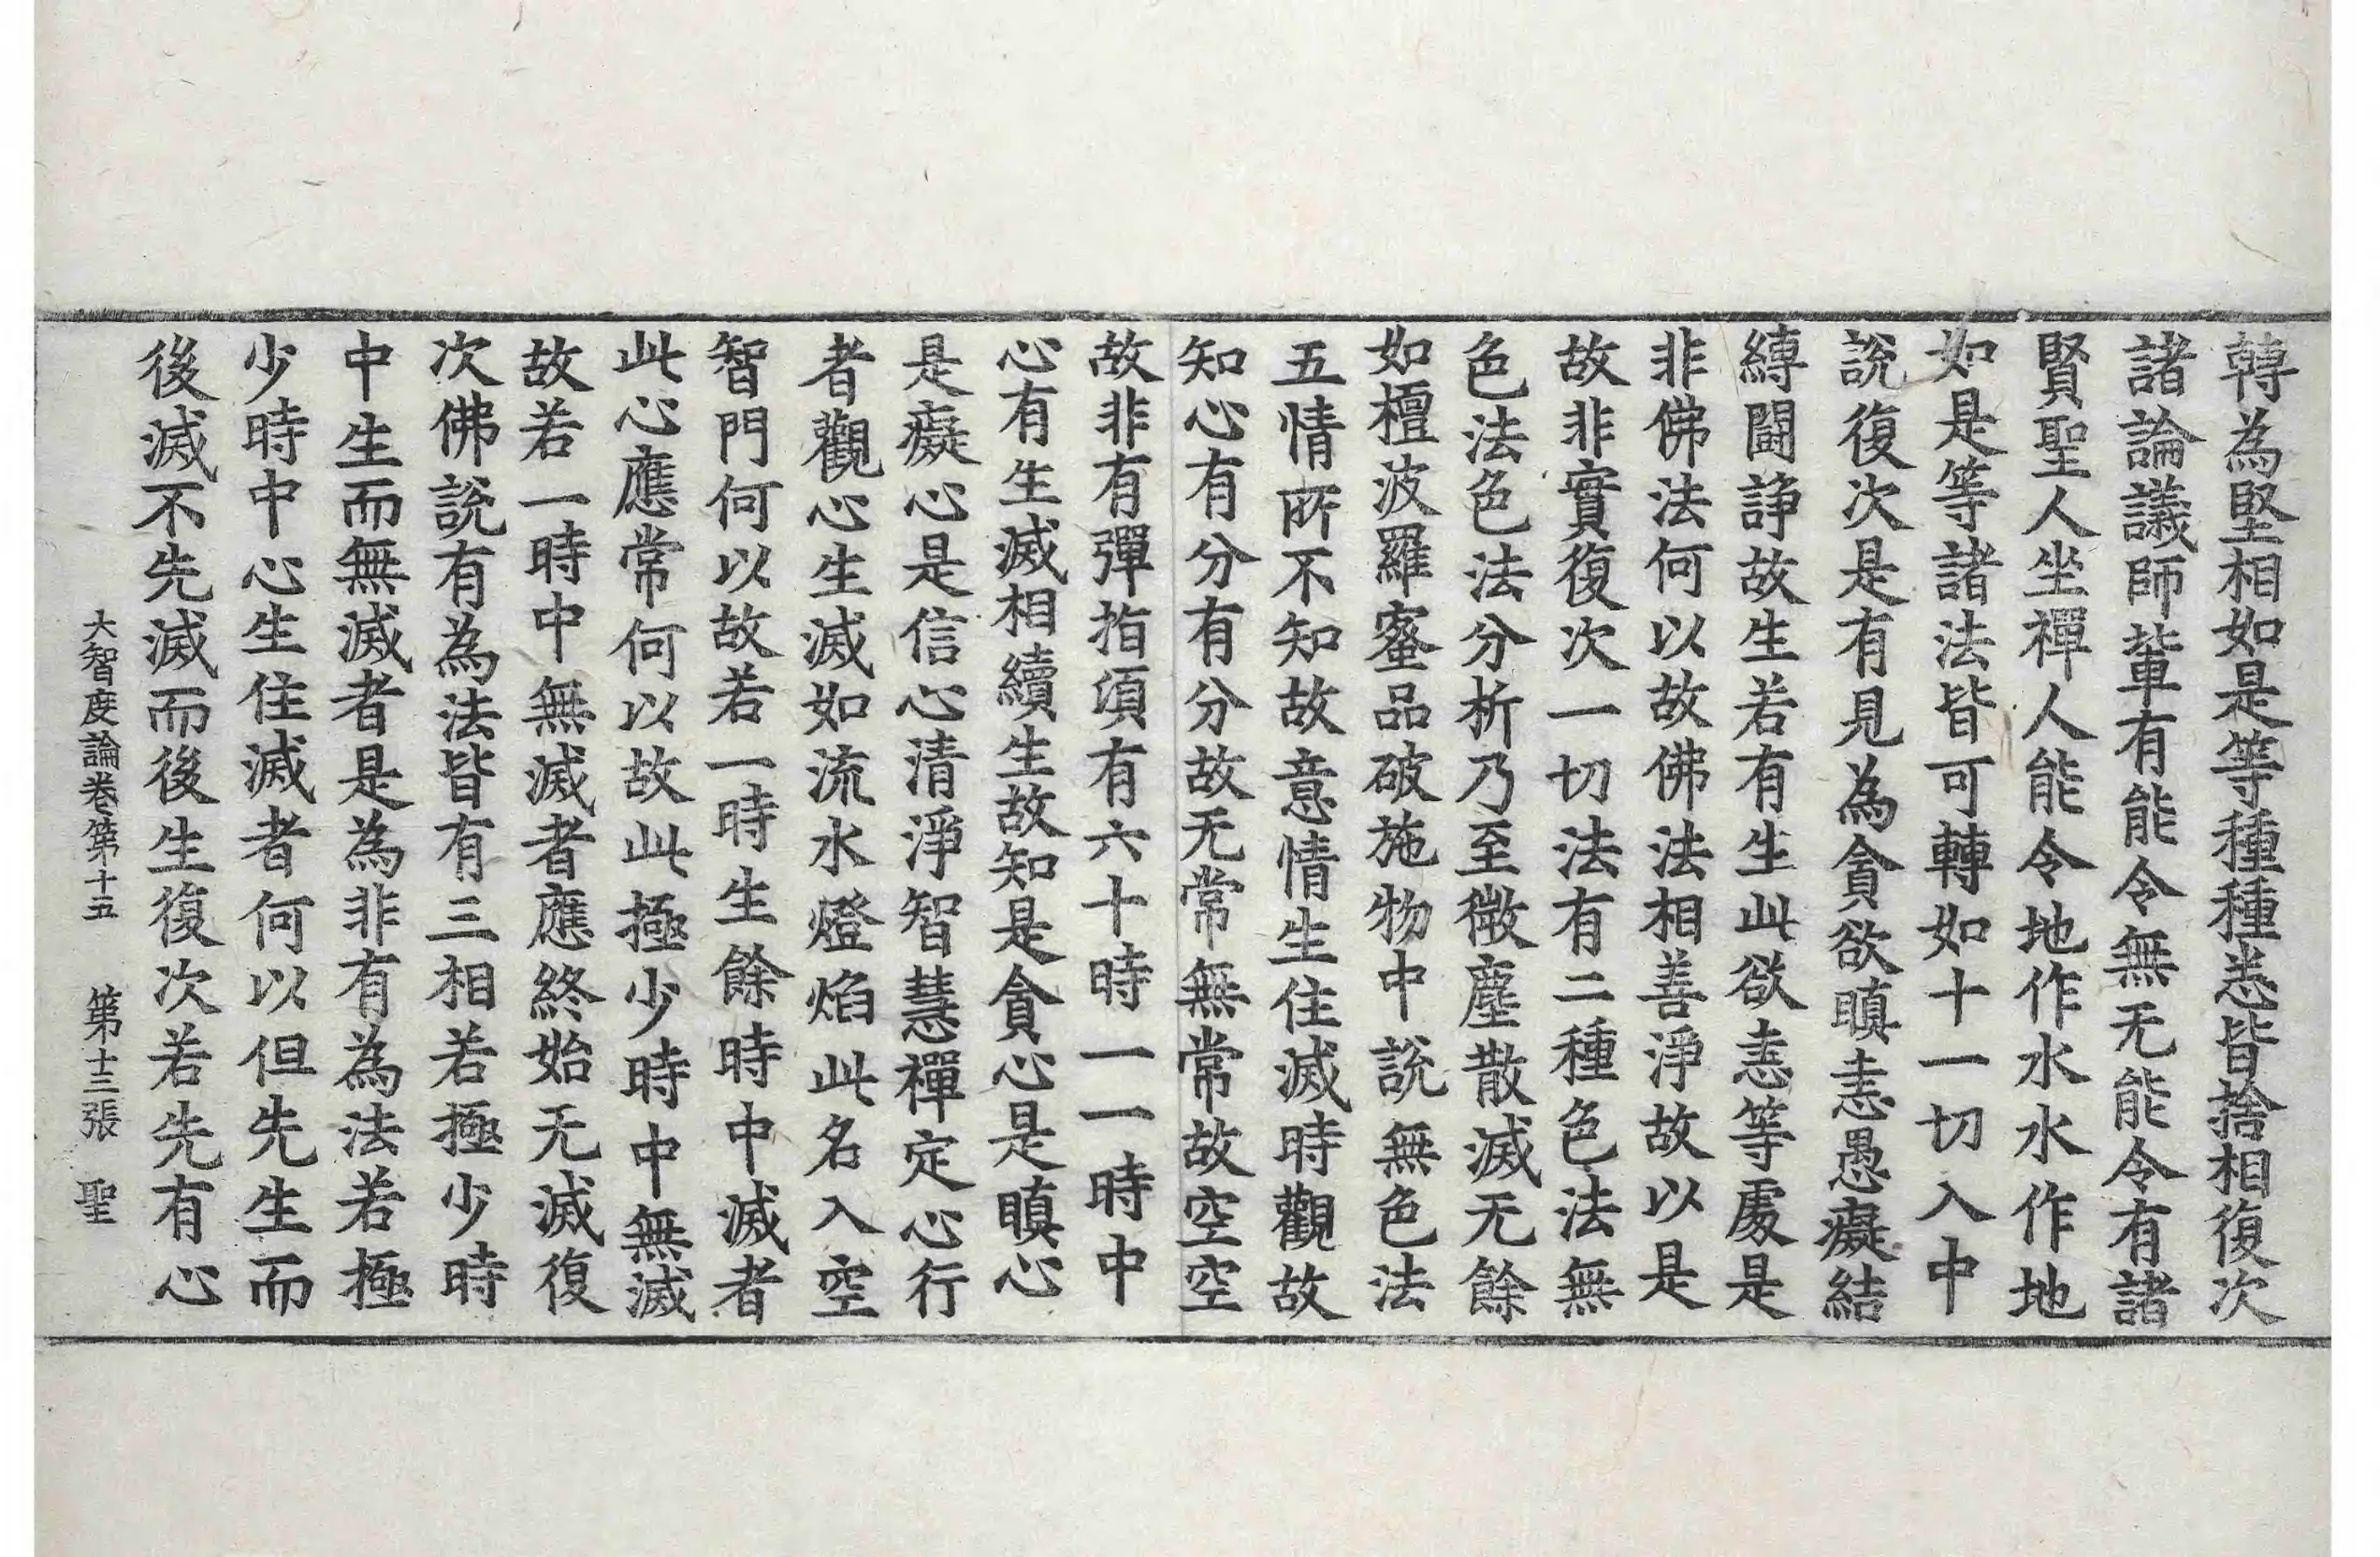 轉為堅相如是等種種恚皆捨相復次
諸論議師軰有能令無无能令有諸
賢聖人坐禪人能令地作水水作地
如是等諸法皆可轉如十一切入中
說復次是有見為貪欲瞋恚愚癡結
縛闘諍故生若有生此欲恚等處是
非佛法何以故佛法相善淨故以是
故非實復次一切法有二種色法無
色法色法分析乃至微塵散滅无餘
如檀波羅蜜品破施物中說無色法
五情所不知故意情生住滅時觀故
知心有分有分故无常無常故空空
故非有彈指頃有六十時一一時中
心有生滅相續生故知是貪心是瞋心
是癡心是信心清淨智慧禪定心行
者觀心生滅如流水燈焰此名入空
智門何以故若一時生餘時中滅者
此心應常何以故此極少時中無滅
故若一時中無滅者應終始无滅復
次佛說有為法皆有三相若極少時
中生而無滅者是為非有為法若極
少時中心生住滅者何以但先生而
後滅不先滅而後生復次若先有心
大智度論卷第十五 第十三張 聖